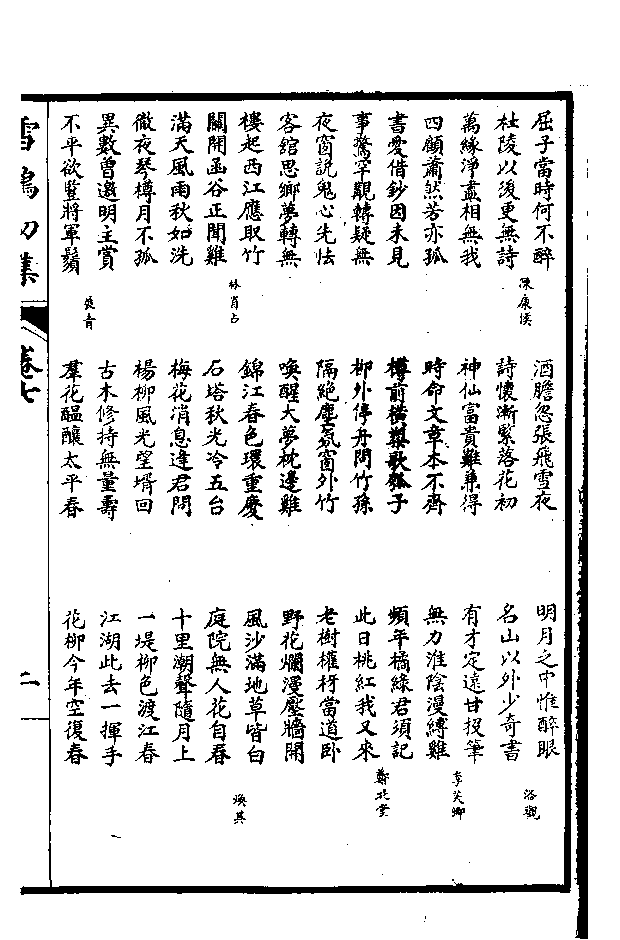 屈子當時何不醉 酒膽忽張飛雪夜 明月之中惟醉眼
杜陵以後更無詩 陳康侯 詩懷漸緊落花初 名山以外少奇書 浴觀
萬緣淨盡相無我 神仙富貴難兼得 有才定遠甘投筆
四顧蕭然若亦孤 時命文章本不齊 無力淮陰漫縛雞 李芙卿
書愛借鈔因未見 樽前橫槊歌瓠子 頻年橘綠君須記
事驚罕覯轉疑無 柳外停舟問竹孫 此日桃紅我又來 鄭北堂
夜窗說鬼心先怯 隔絕塵氛窗外竹 老樹權枒當道臥
客舘思鄉夢轉無 喚醒大夢枕邊雞 野花爛漫壓牆開
樓起西江應取竹 錦江春色環重慶 風沙滿地草皆白
關開函谷正聞雞 林肖占 石塔秋光冷五台 庭院無人花自春 煥其
滿天風雨秋如洗 梅花消息逢君問 十里潮聲隨月上
徹夜琴樽月不孤 楊柳風光望壻回 一堤柳色渡江春
異數曾邀明主賞 古木修持無量壽 江湖此去一揮手
不平欲豎將軍鬚 羣花醞釀太平春 花柳今年空復春
雪鴻初集 卷七 二